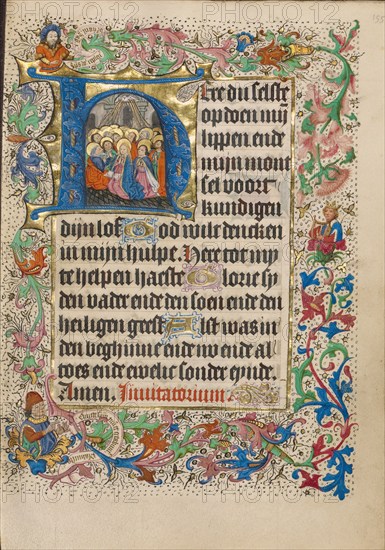 Here du selste
op doen mijn
lippen ende
mijn mont
sel voort
kundigen
dijn lof God wilt dencken
in mijn hulpe Here tot my
te helpen haeste Glorie sy
den vader ende den soen ende den
heiligen geest Alst was in
den beghinne ende nv ende al
toes ende ewelic sonder eynde.
Amen. Invitatorium